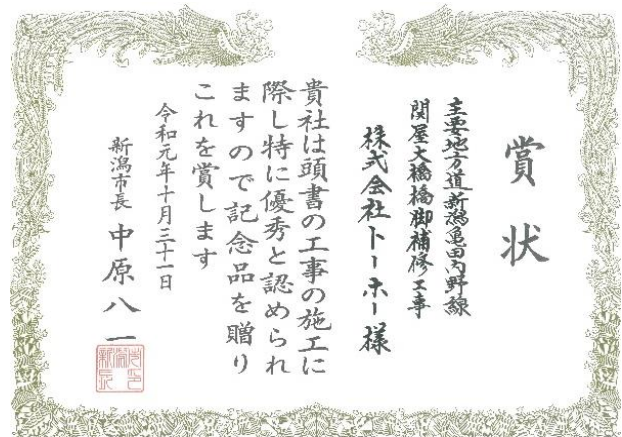 賞状
主要地方道新潟亀田内野線
関屋大橋橋脚補修工事
株式会社トーホー様
貴社は頭書の工事の施工に
際し特に優秀と認められ
ますので記念品を贈り
これを賞します
令和元年十月三十一日
新潟市長 中原八一